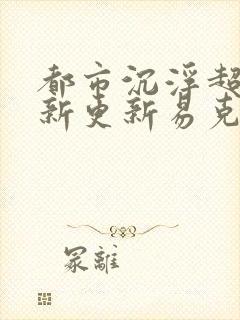 都市沉浮超
新更新易克
冢离